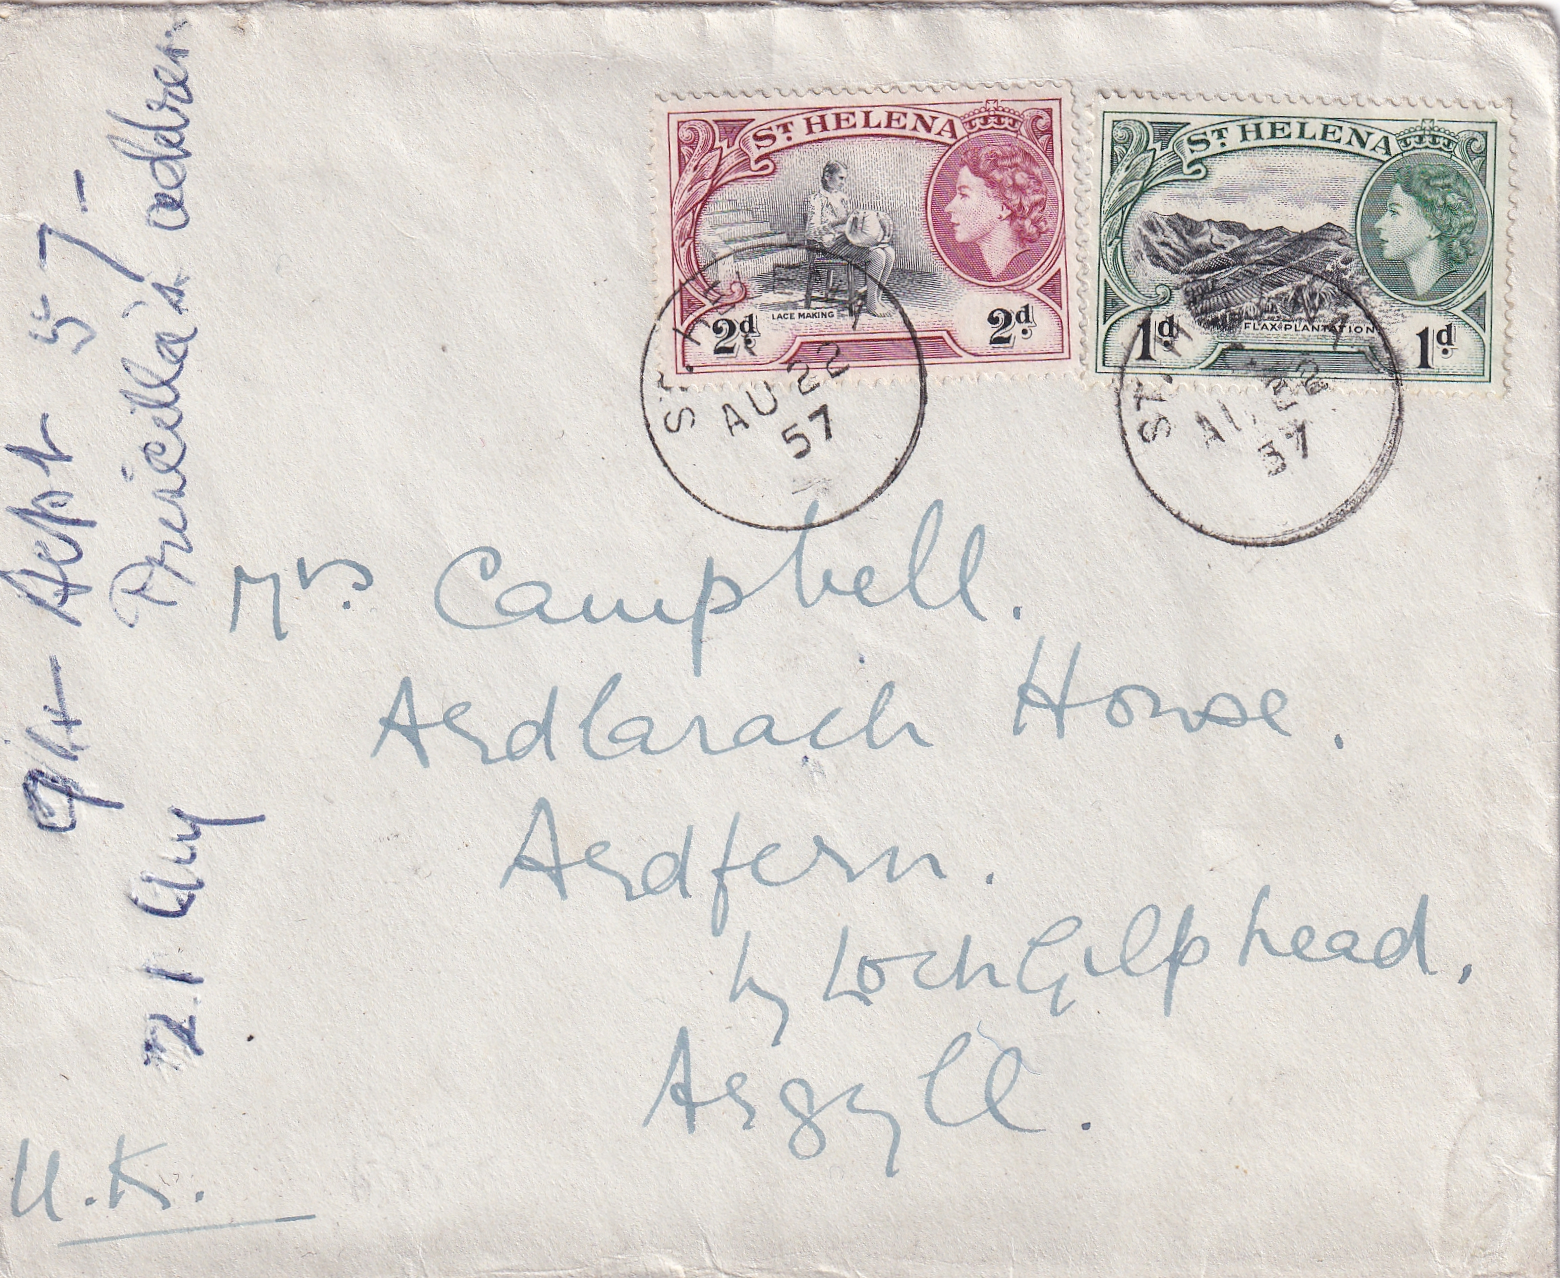 ST HELENA
2d LACE MAKING 2d
ST HELENA
1d FLAX PLANTATION 1d
ST. HELENA
AU 22
57
ST. HELENA
AU 22
57
Mrs Campbell.
Ardlarach House.
Ardfern.
by LochGilphead.
Argyll.
U.K.
Sept 57-
Priscilla's address
21